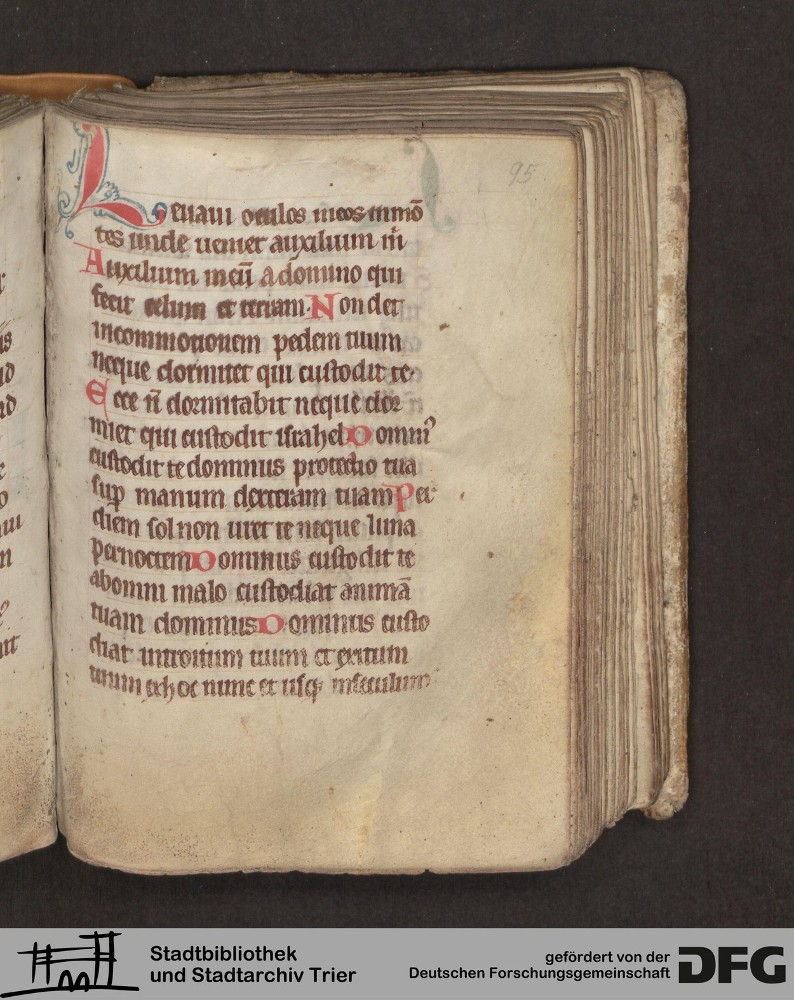 95
Leuaui oculos meos in mō
tes unde ueniet auxilium m̄
Auxilium meū a domino qui
fecit celum et terram. Non det
incommotionem pedem tuum
neque dormitet qui custodit te.
Ecce n̄ dormitabit neque dor
miet qui custodit israhel Domin⁹
custodit te dominus protectio tua
sup manum dexteram tuam Per
diem sol non uret te neque luna
per noctem Dominus custodit te
ab omni malo custodiat animā
tuam dominus Dominus custo
diat introitum tuum et exitum
tuum ex hoc nunc et usq; in seculum
Stadtbibliothek
und Stadtarchiv Trier
gefördert von der
Deutschen Forschungsgemeinschaft
DFG